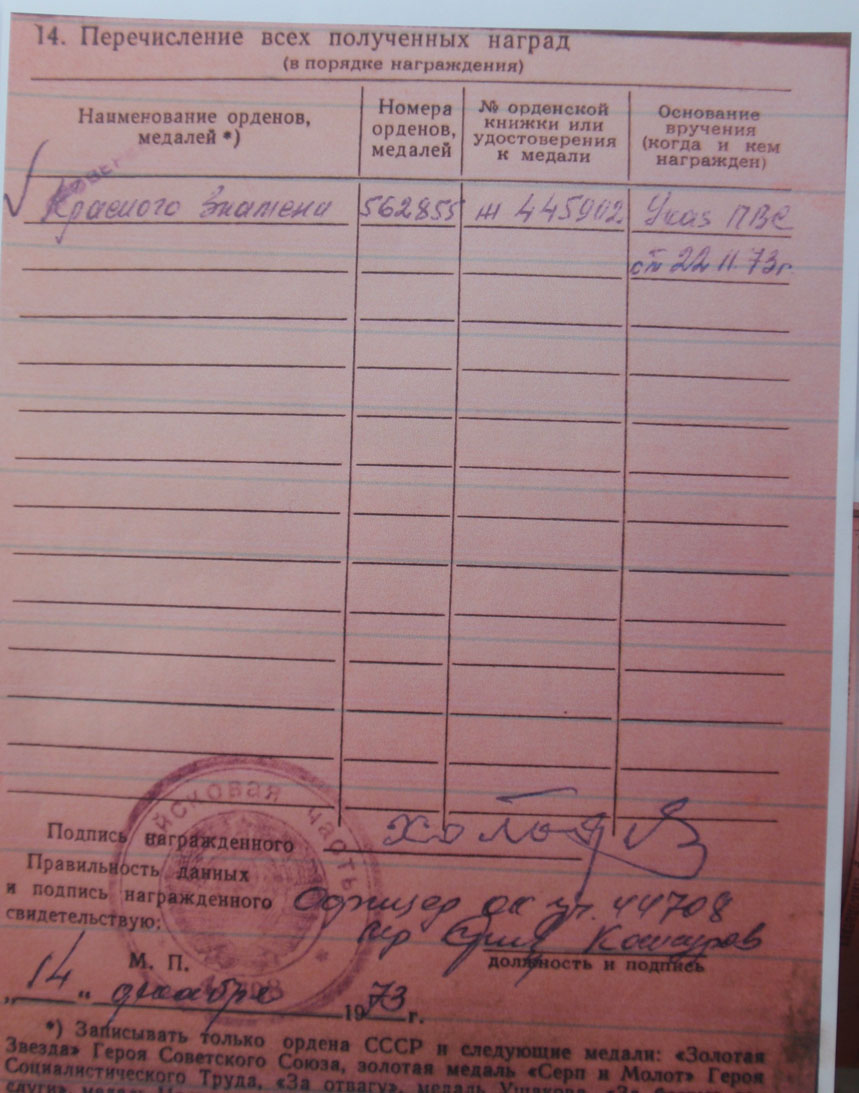 14. Перечисление всех полученных наград
(в порядке награждения)
Наименование орденов,
медалей *)
Номера
орденов,
медалей
№ орденской
книжки или
удостоверения
к медали
Основание
вручения
(когда и кем
награжден)
Красного Знамени 562855 Ж 445902 Указ ПВС
от 22.11.73г.
войсковая часть
Подпись награжденного
Правильность данных
и подпись награжденного Офицер ок уч. 44708
свидетельствую: Кошкуров
должность и подпись
М. П.
„14“ декабря 1973 г.
*) Записывать только ордена СССР и следующие медали: «Золотая
Звезда» Героя Советского Союза, золотая медаль «Серп и Молот» Героя
Социалистического Труда, «За отвагу», медаль Ушакова,